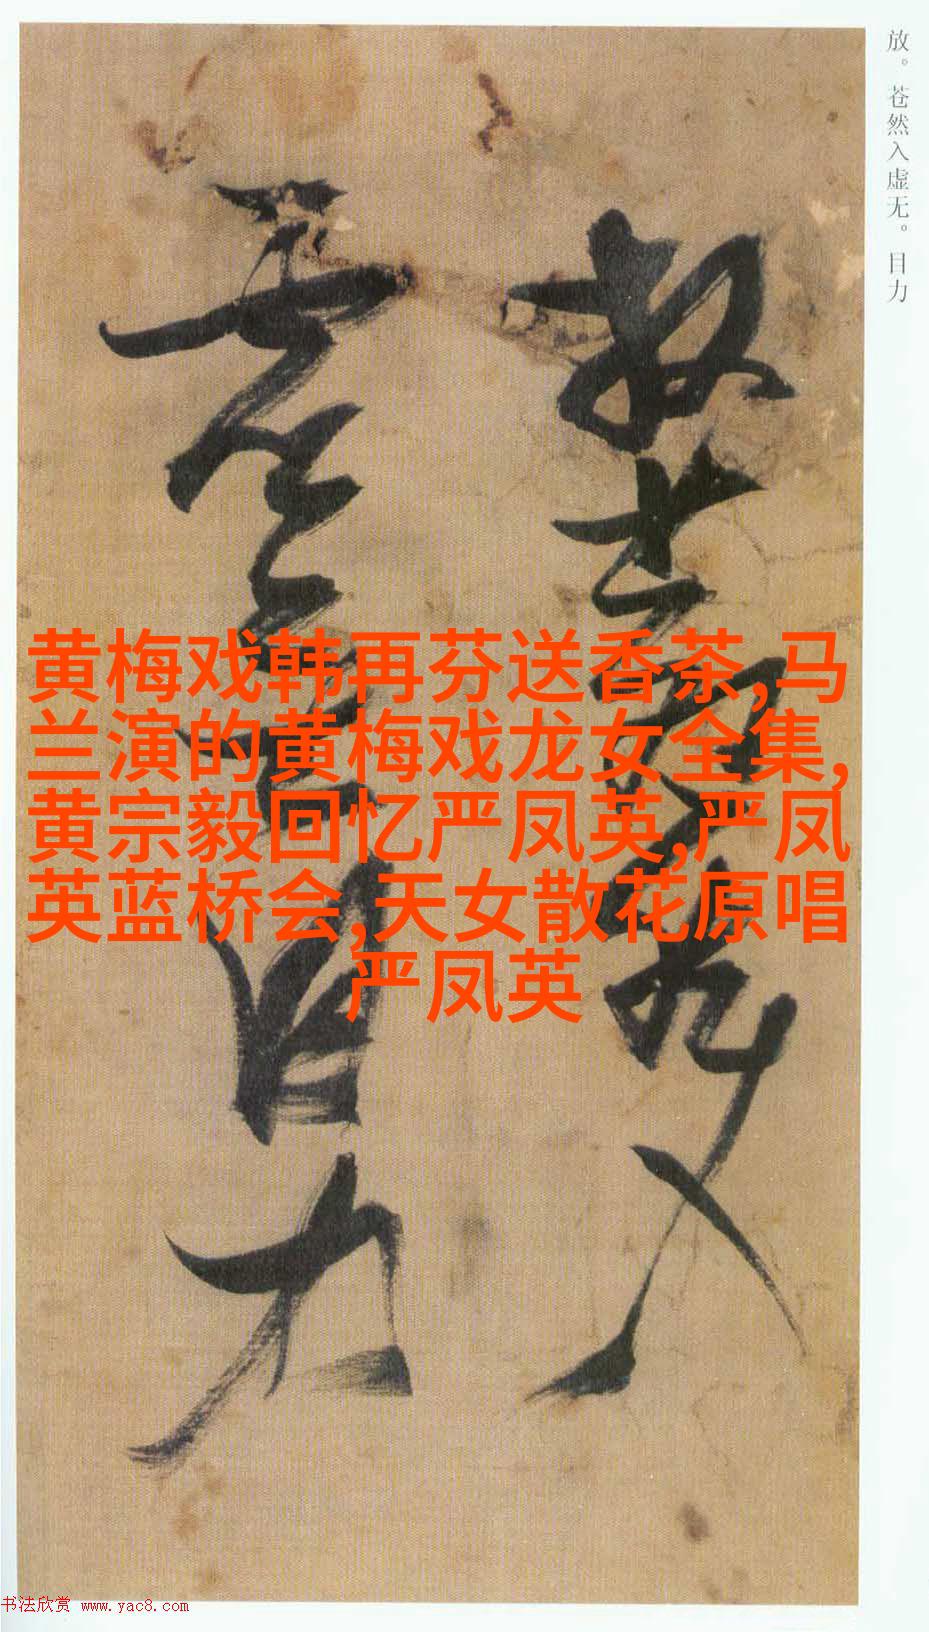 放。苍然入虚无。目力
放苍然入
虚无目力
黄梅戏韩再芬送香茶,马
兰演的黄梅戏龙女全集,
黄宗毅回忆严凤英,严凤
英蓝桥会,天女散花原唱
严凤英
书法欣赏 www.yac8.com